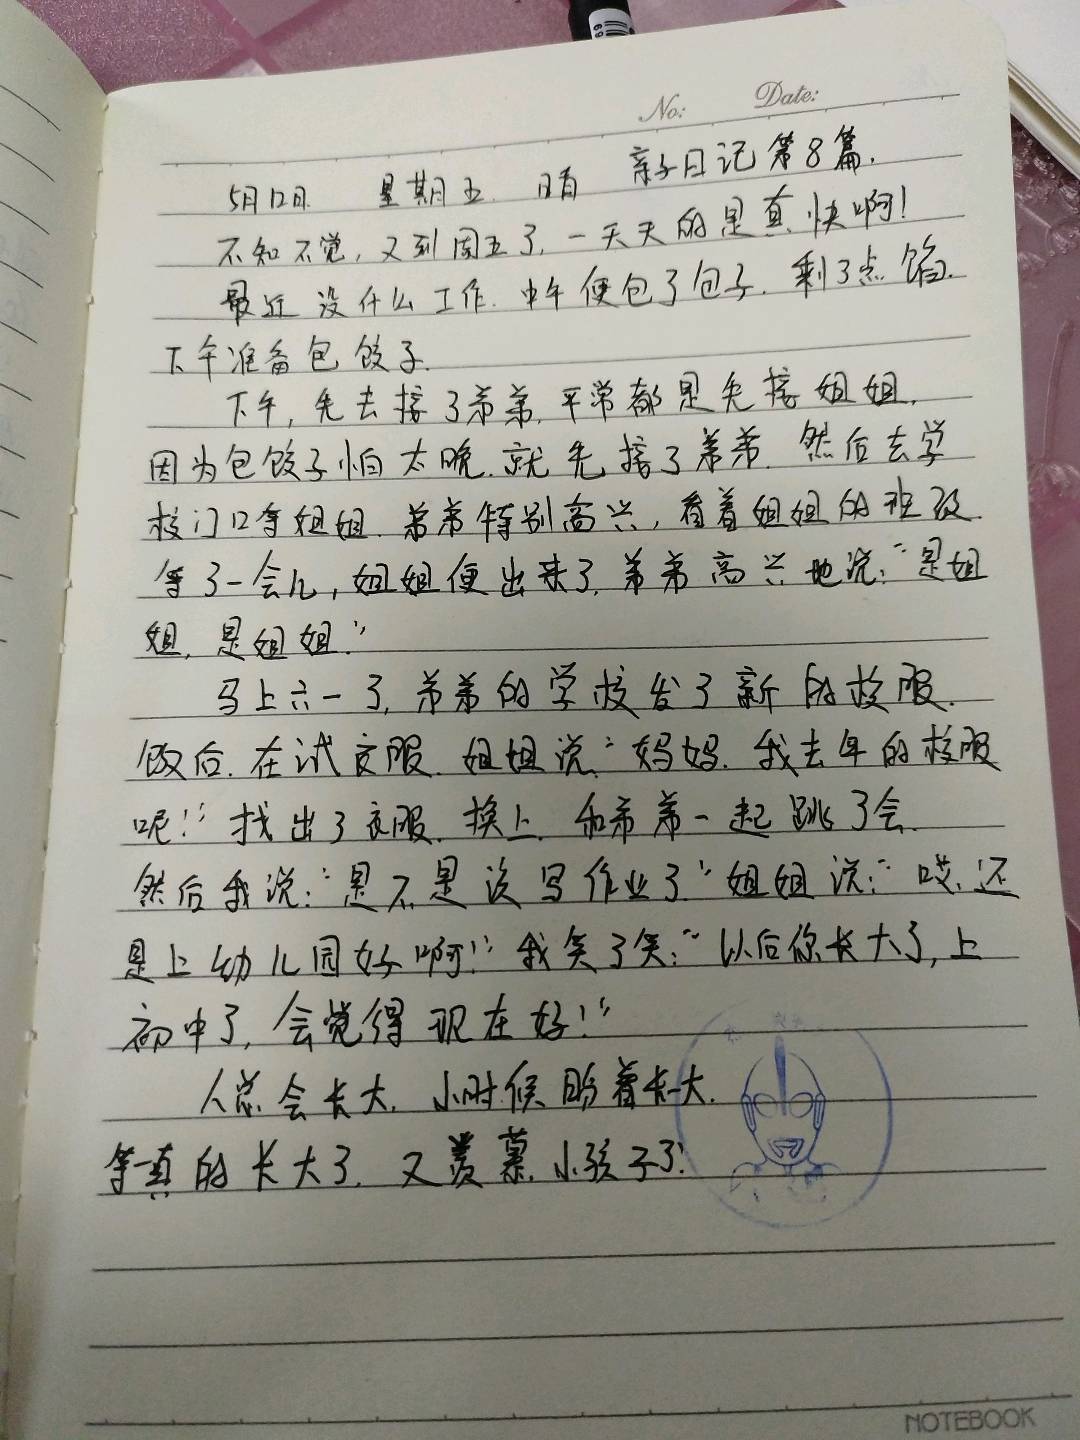 No: Date:
5月12日 星期五 晴 亲子日记第8篇.
不知不觉,又到周五了,一天天的是真快啊!
最近没什么工作.中午便包了包子.剩了点馅.
下午准备包饺子.
下午,先去接了弟弟,平常都是先接姐姐,
因为包饺子怕太晚.就先接了弟弟.然后去学
校门口等姐姐.弟弟特别高兴,看着姐姐的班级.
等了一会儿,姐姐便出来了.弟弟高兴地说:“是姐
姐,是姐姐.”
马上六一了,弟弟的学校发了新的校服.
饭后.在试衣服.姐姐说:“妈妈.我去年的校服
呢!”找出了衣服.换上.和弟弟一起跳了会.
然后我说:“是不是没写作业了”姐姐说:“哎,还
是上幼儿园好啊!”我笑了笑:“以后你长大了,上
初中了,会觉得现在好!”
人总会长大.小时候盼着长大.
等真的长大了.又羡慕小孩子了!
NOTEBOOK